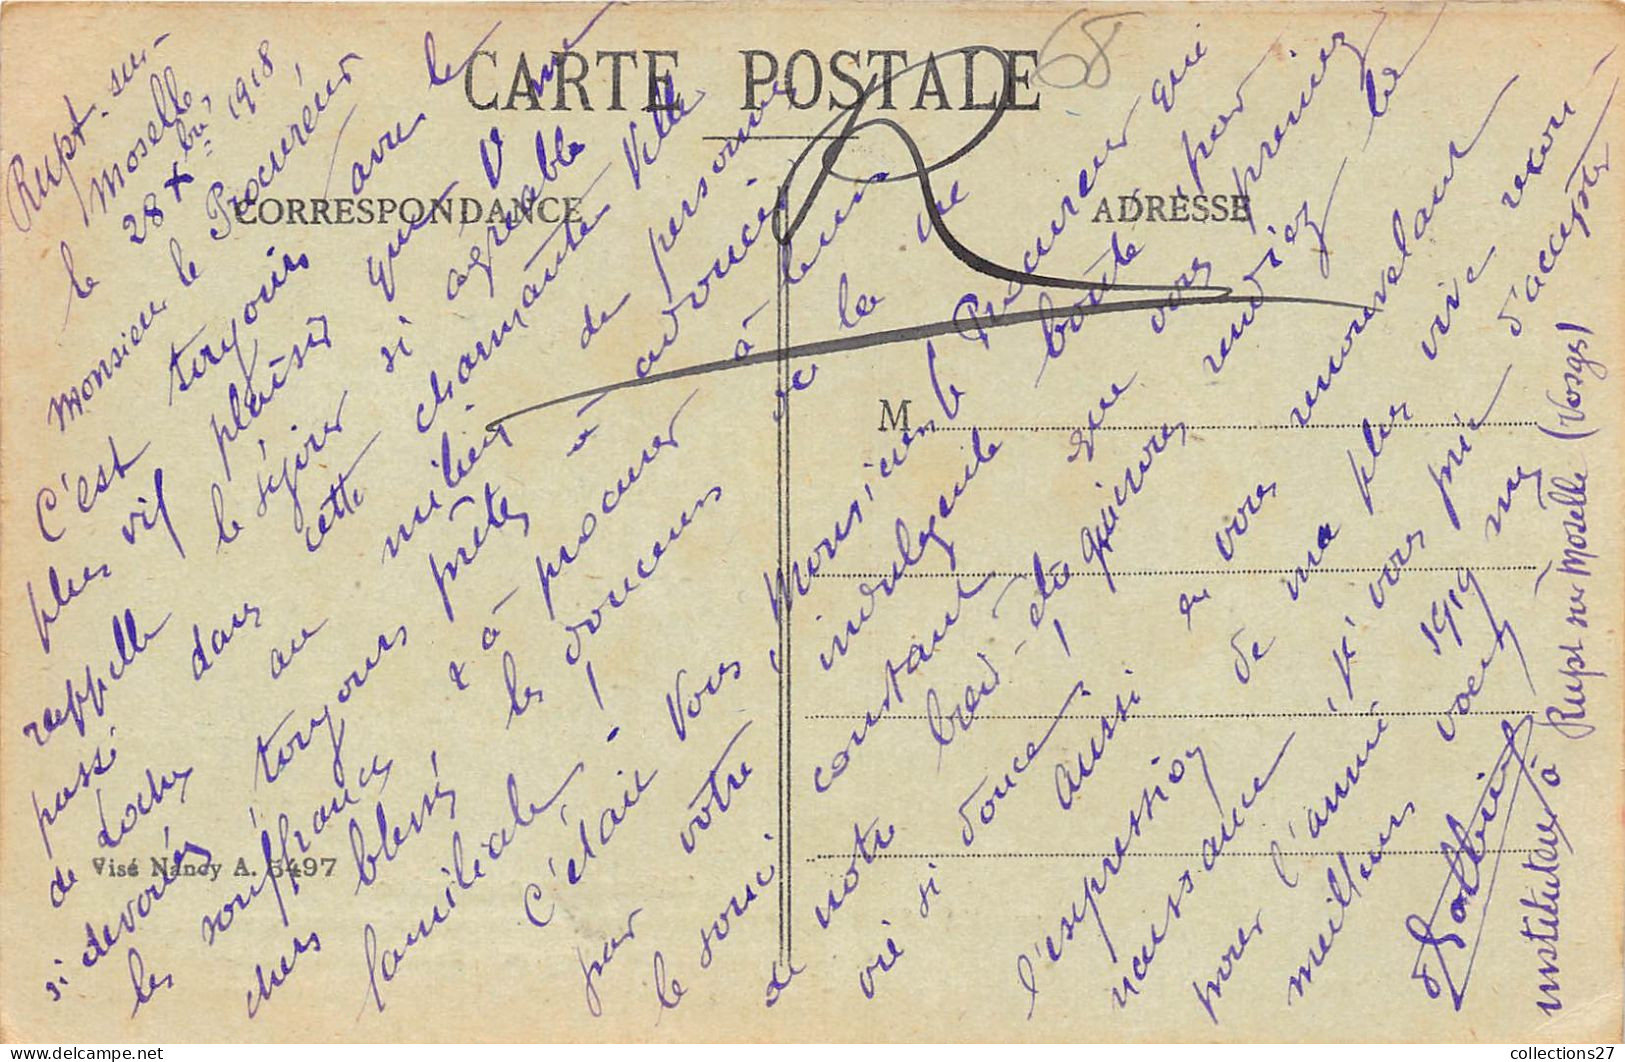 CARTE POSTALE
68
CORRESPONDANCE
ADRESSE
M
Visé Nancy A. 5497
Rupt-sur-
Moselle,
le 28 Xbre 1918
Monsieur le Procureur,
C'est toujours avec le
plus vif plaisir que V me
rappelle le séjour si agréable
passé dans cette charmante Ville
de Loches au milieu de personnes
si dévouées, toujours prêtes à adoucir
les souffrances & à procurer à leurs
chers blessés les douceurs de la vie
familiale !
C'était Vous, Monsieur le Procureur qui
par votre indulgente bonté, par
le souci constant que vous preniez
de notre bien-être qui nous rendiez la
vie si douce !
aussi en vous renouvelant
l'expression de ma plus vive recon-
naissance, je vous prie d'accepter
pour l'année 1919 mes
meilleurs voeux
instituteur à Rupt sur Moselle (Vosges)
collections27